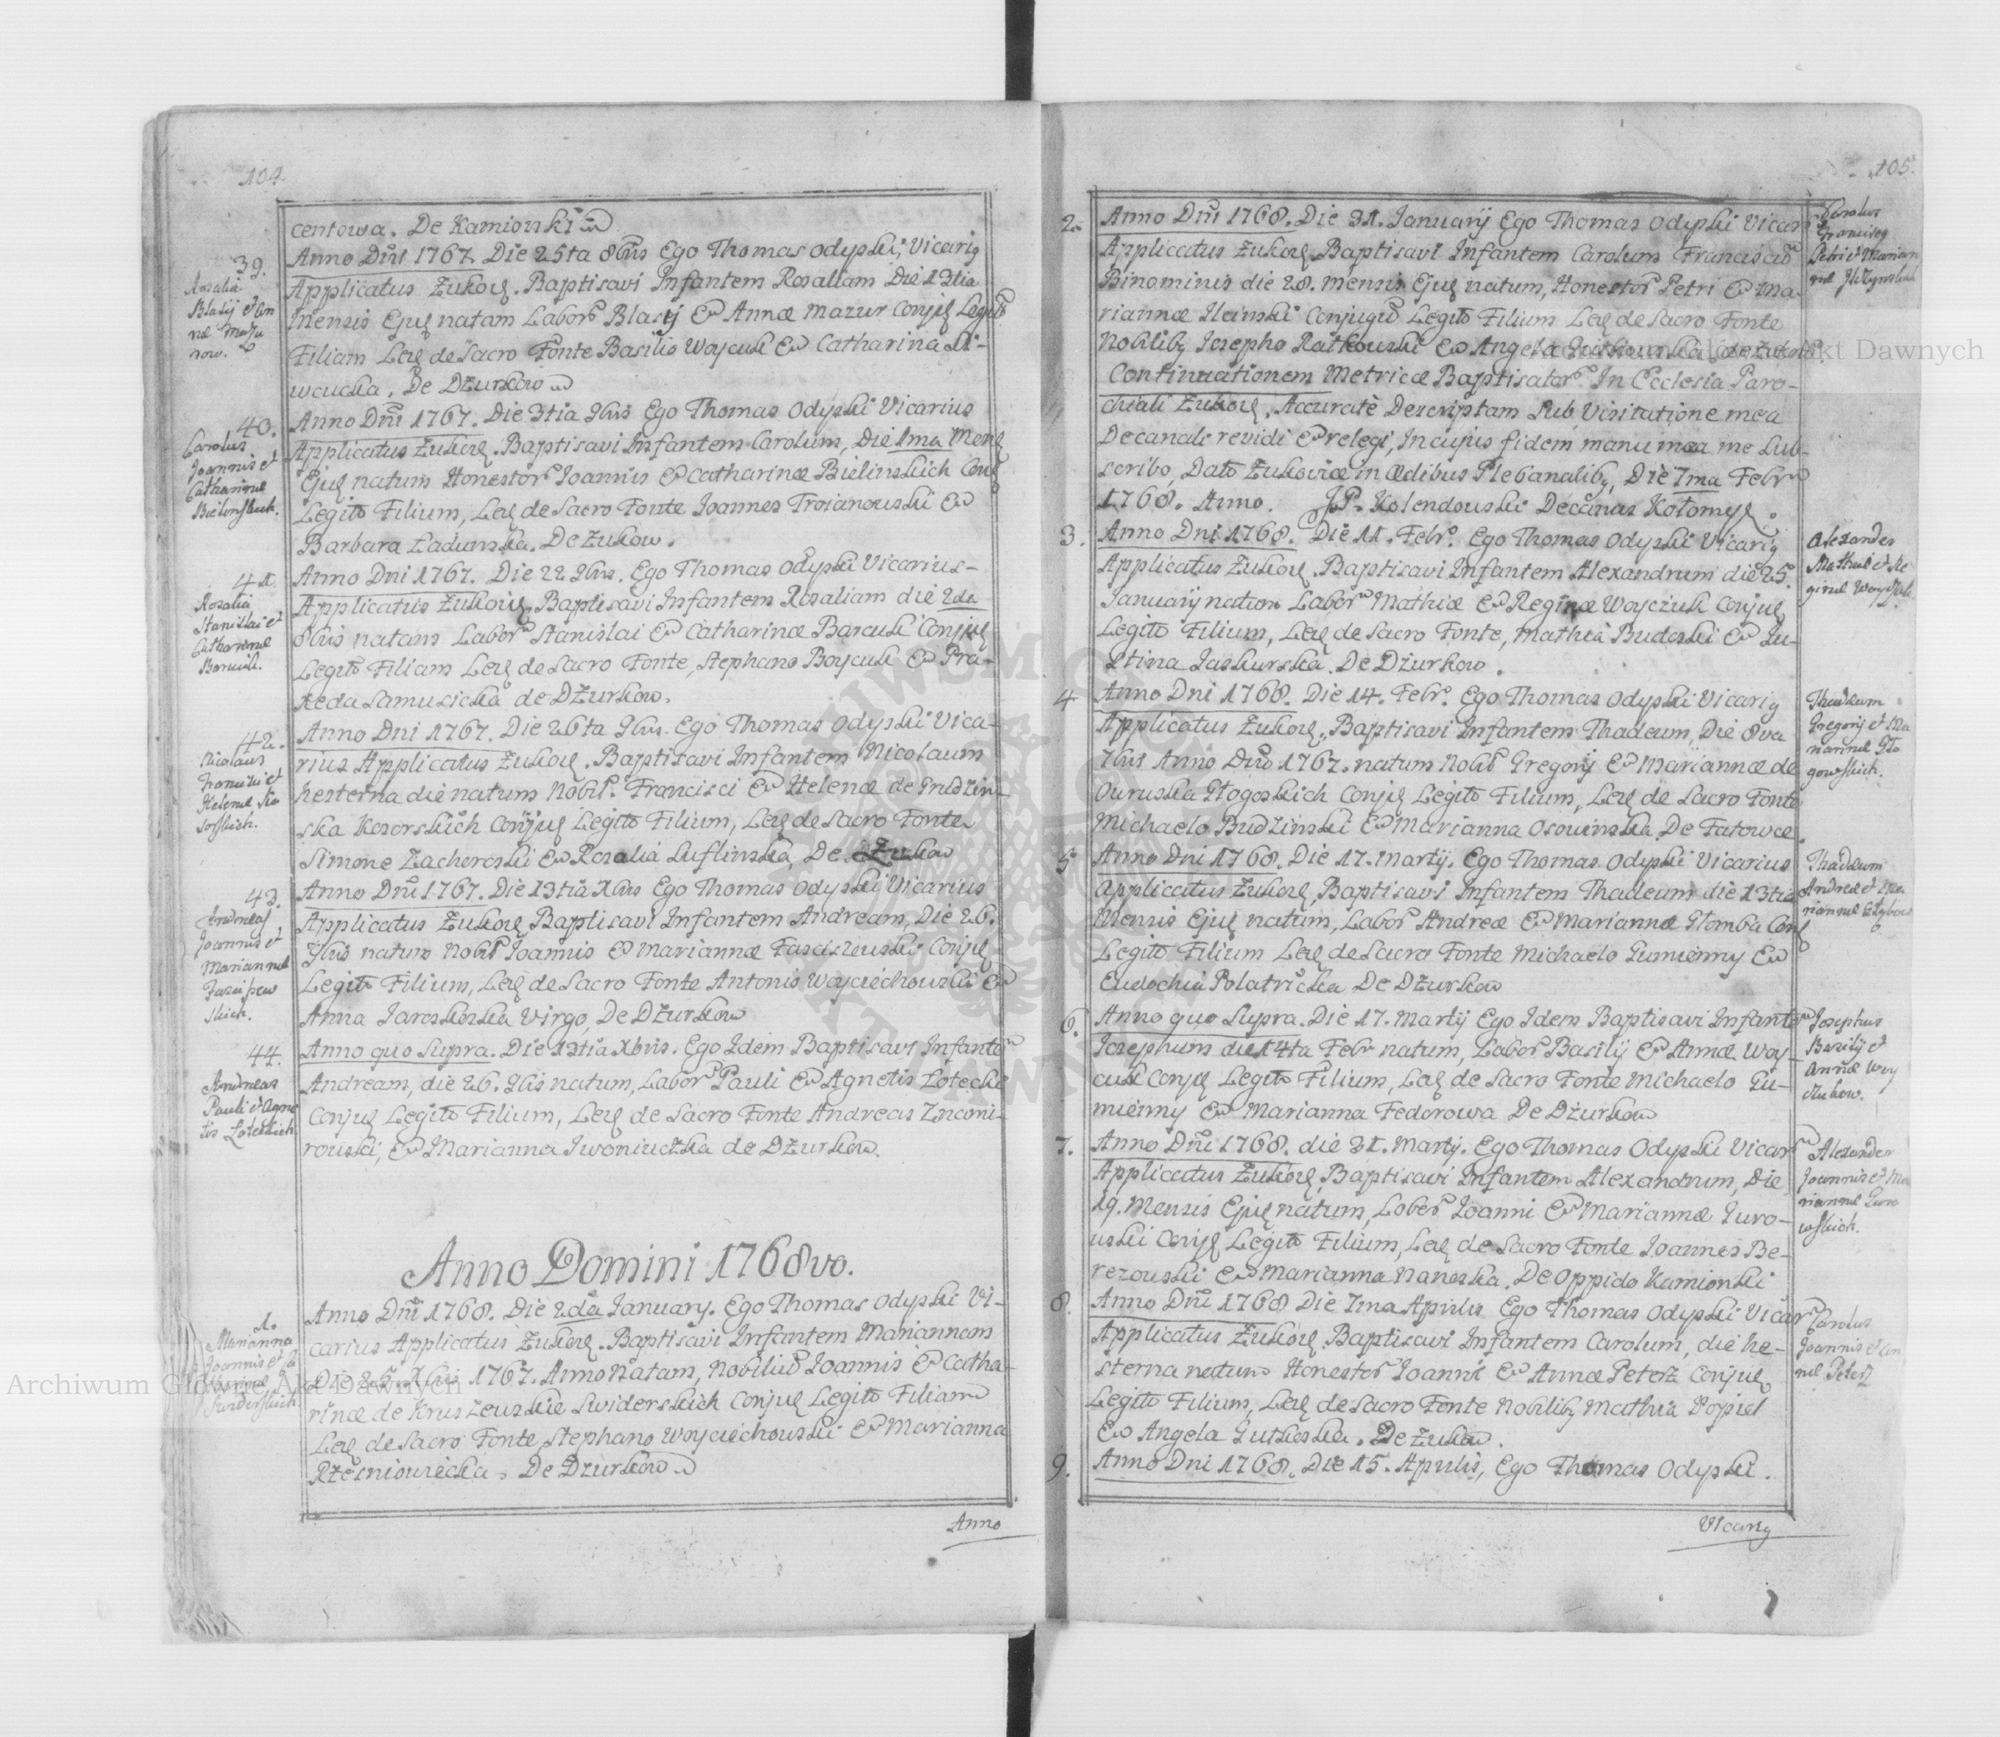 104.
centowa. De Kamionki
39.
Rosalia
Blasij et An
næ Mazu
row.
Anno Dni 1767. Die 25ta 8bris Ego Thomas Odyski, Vicariq
Applicatus Żukov. Baptisavi Infantem Rosaliam Die 13tia
Mensis Ejus natam Labor. Blasij Et Annæ Mazur Conjug Legit
Filiam Lev de Sacro Fonte Basilio Woycuk Et Catharina Si-
wcucka. De Dżurkow
40.
Carolus
Joannis et
Catharinæ
Bielinskich.
Anno Dni 1767. Die 3tia 9bris Ego Thomas Odyski Vicarius
Applicatus Żukov. Baptisavi Infantem Carolum, Die 1ma Mens
Ejus natum Honestor Joannis Et Catharinæ Bielinskich Conj
Legito Filium, Lev de Sacro Fonte Joannes Troianouski Et
Barbara Ładunska. De Żukow.
41.
Rosalia
Stanislai et
Catharinæ
Barcuk.
Anno Dni 1767. Die 22 9bris. Ego Thomas Odyski Vicarius-
Applicatus Żukov. Baptisavi Infantem Rosaliam die 2da
8bris natam Labor Stanislai Et Catharinæ Barcuk Conjug
Legito Filiam Lev de Sacro Fonte, Stephano Boycuk Et Pra-
xeda Samusicka de Dżurkow.
42.
Nicolaus
Francisci et
Helenæ Ko
sorskich.
Anno Dni 1767. Die 26ta 9bris. Ego Thomas Odyski Vica-
rius Applicatus Żukov. Baptisavi Infantem Nicolaum
hesterna die natum Nobil. Francisci Et Helenæ de Grudzin-
ska Kosorskich Conjug Legito Filium, Lev de Sacro Fonte
Simone Zacheroski Et Rosalia Luflinska, De Żukow
43.
Andreas
Joannis et
Mariannæ
Fasciszew
skich.
Anno Dni 1767. Die 13tia Xbris Ego Thomas Odyski Vicarius
Applicatus Żukov Baptisavi Infantem Andream, Die 26.
9bris natum Nobil Joannis Et Mariannæ Fasciszeuski Conjug
Legito Filium, Lev de Sacro Fonte Antonis Woyciechowski Et
Anna Jaroskoska Virgo, De Dżurkow
44.
Andreas
Pauli et Agne
tis Loteckich
Anno quo Supra. Die 13tia Xbris. Ego Idem Baptisavi Infante
Andream, die 26. 9bris natum, Labor Pauli Et Agnetis Lotecki
Conjug Legito Filium, Lev de Sacro Fonte Andreas Zinconi-
rouski, Et Marianna Jwoniuczka de Dżurkow.
Anno Domini 1768vo.
1.
Marianna
Joannis et Ca
Swiderskich.
Anno Dni 1768. Die 2da January. Ego Thomas Odyski Vi-
carius Applicatus Żukov. Baptisavi Infantem Mariannam
Die 25. Xbris 1767. Anno Natam, Nobiliu Joannis Et Catha-
rinæ de Kruszeuskie Swiderskich Conjug Legito Filiam
Lev de Sacro Fonte Stephano Woyciechouski Et Marianna
Rżesniowiecka. De Dżurkow
Anno
105.
2.
Carolus
Franciscq
Petri et Marian
næ
Anno Dni 1768. Die 31. Januarij Ego Thomas Odyski Vicar
Applicatus Żukov. Baptisavi Infantem Carolum Francisc
Binominis die 28. mensis Ejus natum, Honestor Petri Et Ma-
riannæ Ilcinski Conjugu Legito Filium Lev de Sacro Fonte
Nobilib Josepho Ratkouski Et Angela Gutkouska. de Żukow.
Continuationem Metricæ Baptisator In Ecclesia Paro-
chiali Żukov. Accuratè Descriptam Sub Visitatione mea
Decanali revidi Et relegi, In cujus fidem manu mea me Sub-
scribo, Dato Żukoviæ in ædibus Plebanalib, Die 7ma Febr
1768. Anno. JP. Kolendouski Decanus Kołomy.
3.
Alexander
Mathiæ et Re
ginæ Woyczuk
Anno Dni 1768. Die 11. Febr. Ego Thomas Odyski Vicariq
Applicatus Żukov. Baptisavi Infantem Alexandrum die 25.
Januarij natum Labor Mathiæ Et Reginæ Woyczuk Conjug
Legito Filium, Lev de Sacro Fonte, Mathia Budoski Et Ju-
stina Jaskurska. De Dżurkow.
4
Thadeum
Gregorij et Ma
riannæ Gło
gowskich.
Anno Dni 1768. Die 14. Febr. Ego Thomas Odyski Vicariq
Applicatus Żukov. Baptisavi Infantem Thadeum, Die 8va
7bris Anno Dni 1767. natum Nobil Gregorij Et Mariannæ de
Ouruska Głogoskich Conjug Legito Filium, Lev de Sacro Fonte
Michaelo Budzinski Et Marianna Osowinska De Fatowce
5
Thadeum
Andreæ et Ma
riannæ
Anno Dni 1768. Die 17. Martij. Ego Thomas Odyski Vicarius
Applicatus Żukov. Baptisavi Infantem Thadeum die 13tia
Mensis Ejus natum, Labor Andreæ Et Mariannæ Głomba Conj
Legito Filium Lev de Sacro Fonte Michaelo Gumienny Et
Eudochia Polatricka De Dżurkow
6.
Josephus
Basilij et
Annæ Woy
czukow.
Anno quo Supra. Die 17. Martij Ego Idem Baptisavi Infante
Josephum die 14ta Febr natum, Labor Basilij Et Annæ Woy-
cuk Conjug Legito Filium, Lev de Sacro Fonte Michaelo Gu-
mienny Et Marianna Fedorowa De Dżurkow
7.
Alexander
Joannis et Ma
riannæ Guro
wskich.
Anno Dni 1768. die 31. Martij. Ego Thomas Odyski Vicar
Applicatus Żukov. Baptisavi Infantem Alexandrum, Die
19. Mensis Ejus natum, Labor Joanni Et Mariannæ Guro-
uski Conjug Legito Filium, Lev de Sacro Fonte Joannes Be-
rezouski Et Marianna Naneska. De Oppido Kamionki
8.
Carolus
Joannis et An
næ Petersz
Anno Dni 1768 Die 7ma Aprilis Ego Thomas Odyski Vicar
Applicatus Żukov. Baptisavi Infantem Carolum, die he-
sterna natum Honestor Joannis Et Annæ Petersz Conjug
Legito Filium, Lev de Sacro Fonte Nobilib Mathia Popiel
Et Angela Gutkoska. De Żukow.
9.
Anno Dni 1768. Die 15. Aprilis, Ego Thomas Odyski.
Vicariq
Archiwum Główne Akt Dawnych
Archiwum Główne Akt Dawnych